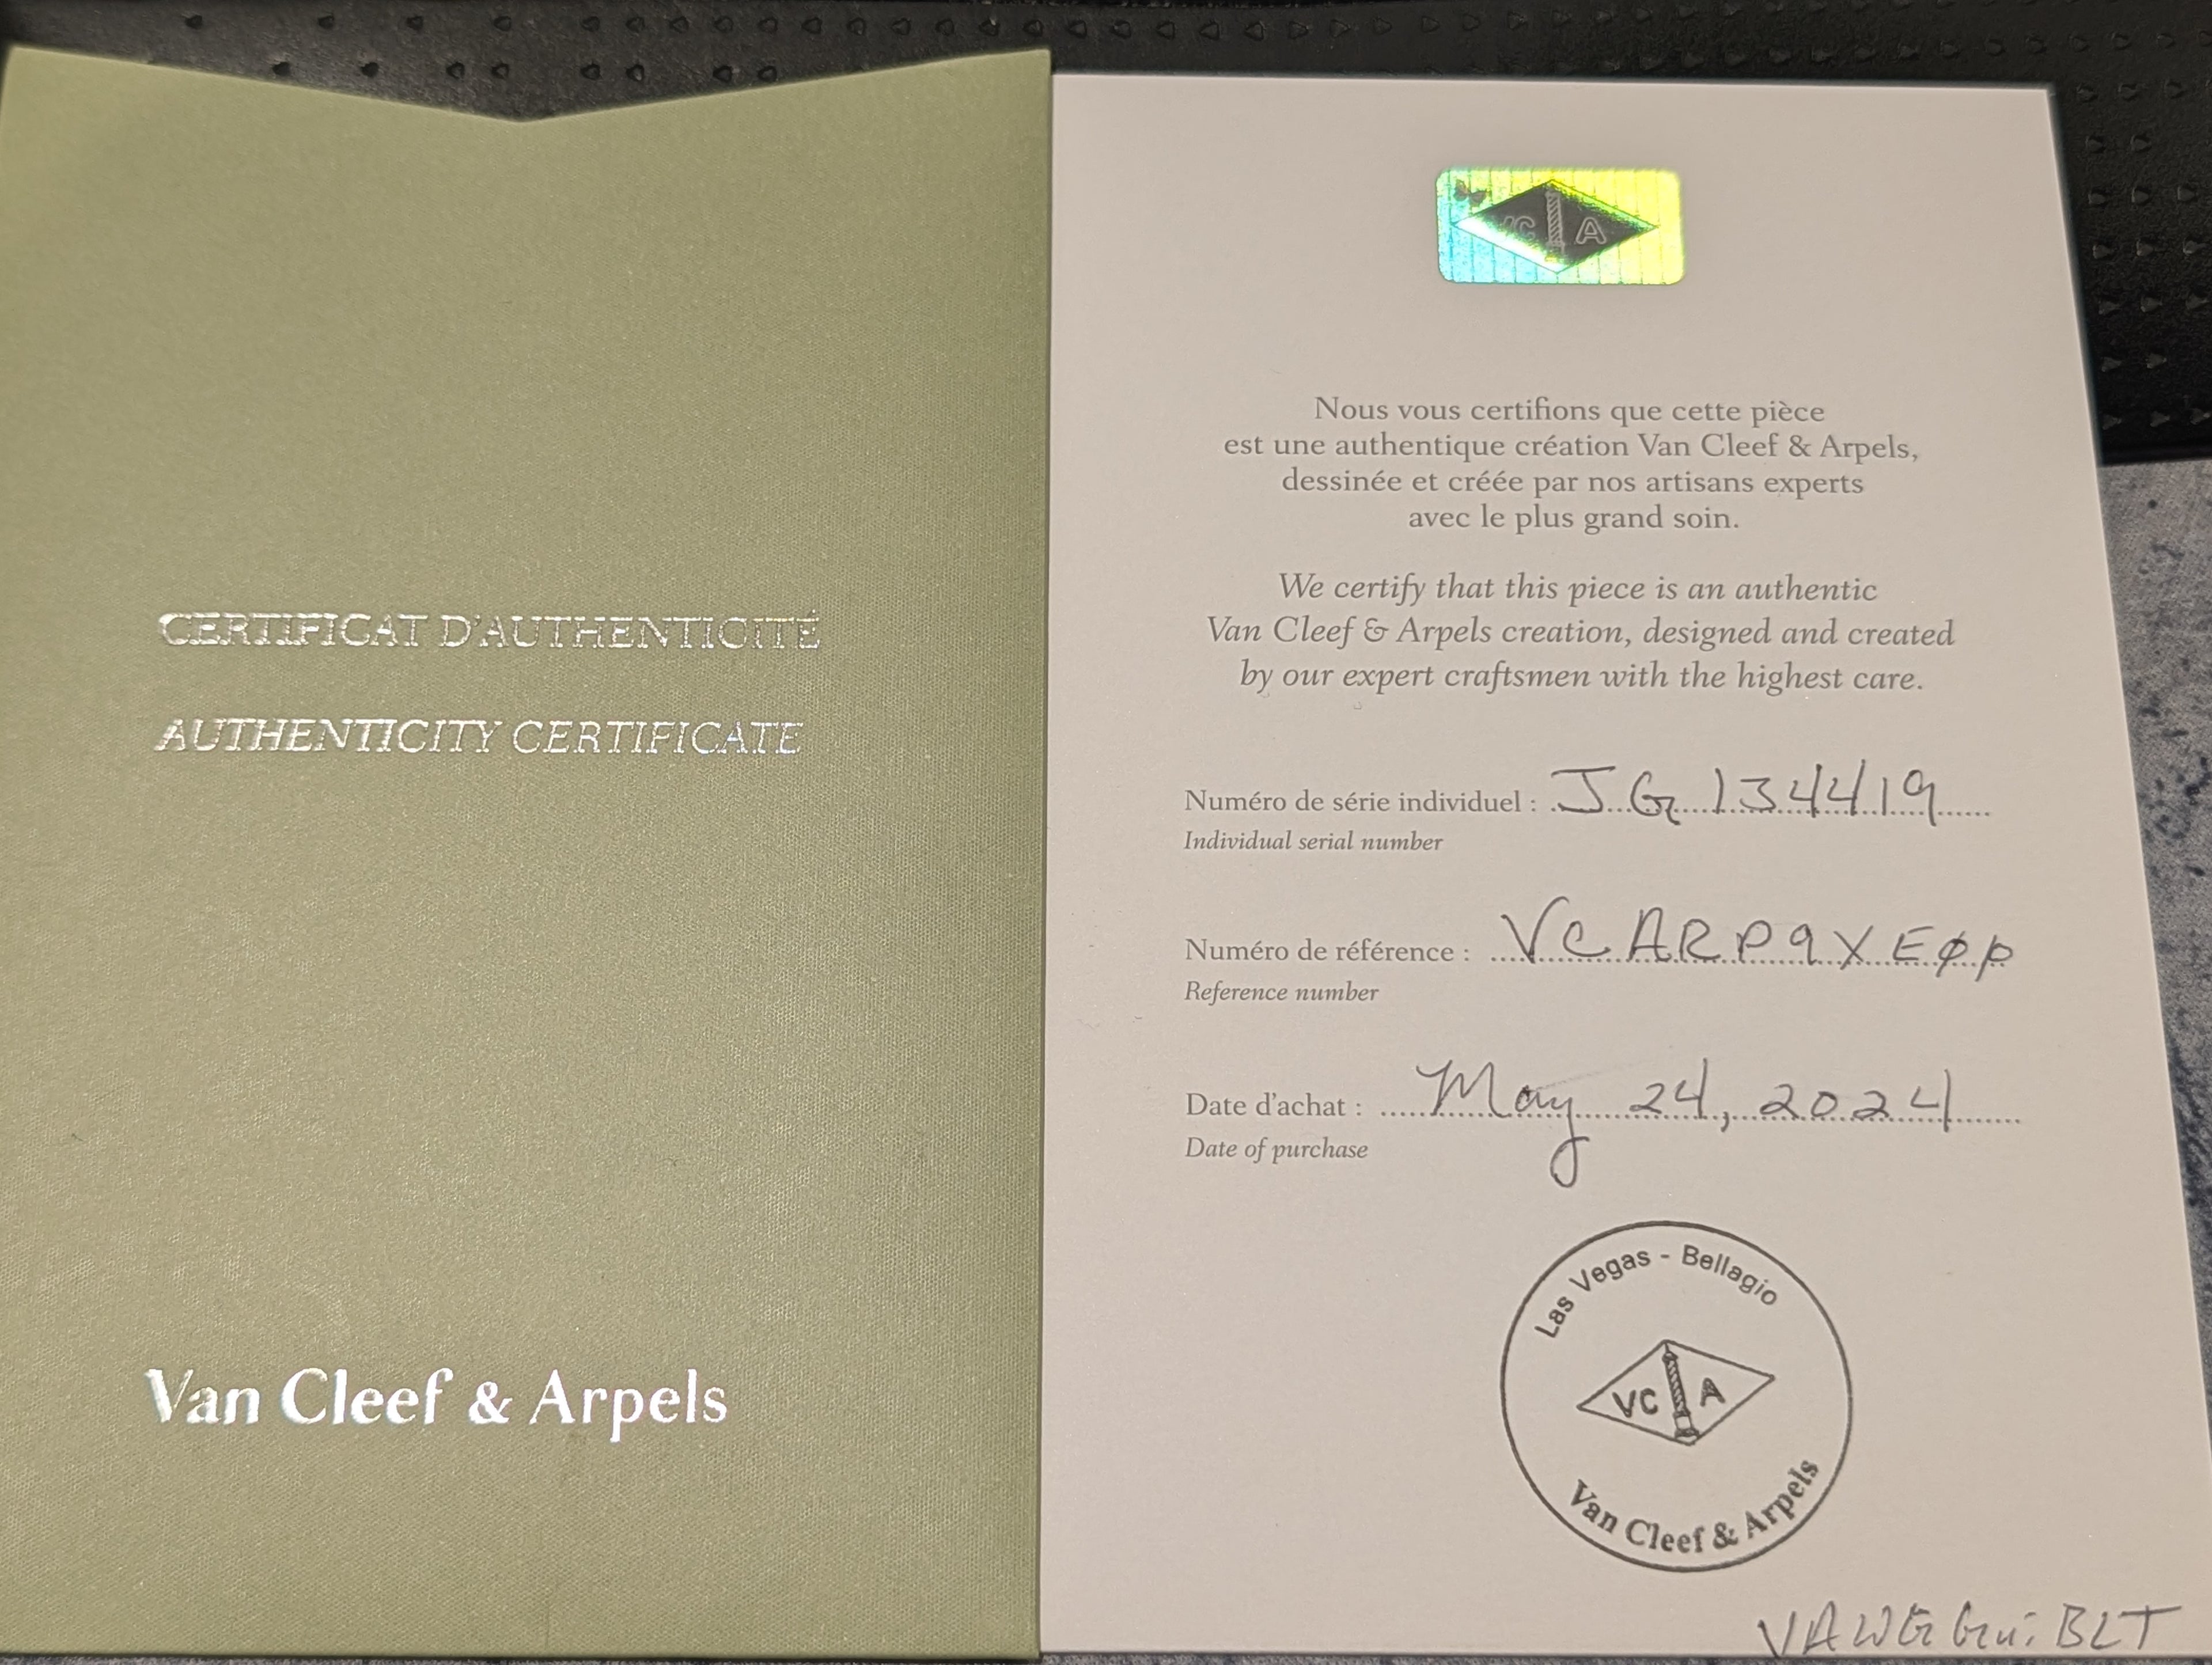 CERTIFICAT D'AUTHENTICITÉ
AUTHENTICITY CERTIFICATE
Van Cleef & Arpels
VC A
Nous vous certifions que cette pièce
est une authentique création Van Cleef & Arpels,
dessinée et créée par nos artisans experts
avec le plus grand soin.
We certify that this piece is an authentic
Van Cleef & Arpels creation, designed and created
by our expert craftsmen with the highest care.
Numéro de série individuel : JG134419
Individual serial number
Numéro de référence :
Reference number
Date d'achat : May 24, 2024
Date of purchase
Las Vegas - Bellagio
VC A
Van Cleef & Arpels
BLT